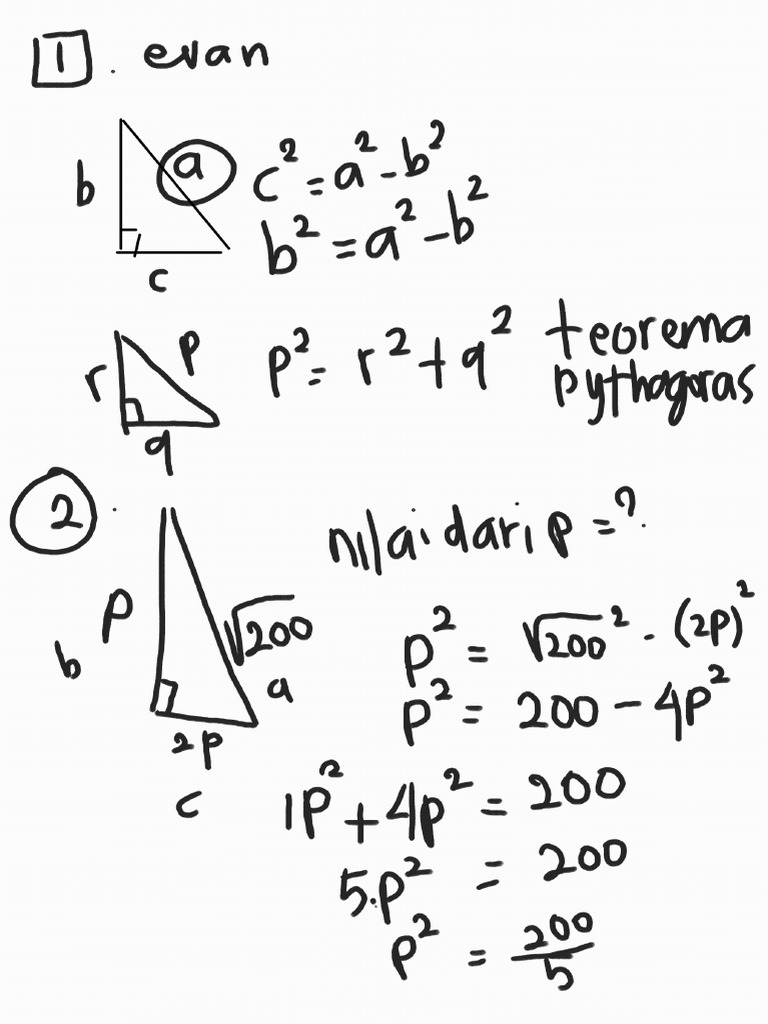 1. evan
b a c² = a² - b²
b² = a² - b²
c
r p p² = r² + q² teorema
pythagoras
q
2. nilai dari p = ?
p √200 p² = √200² - (2p)²
b a p² = 200 - 4p²
2p
c 1p² + 4p² = 200
5.p² = 200
p² = 200/5